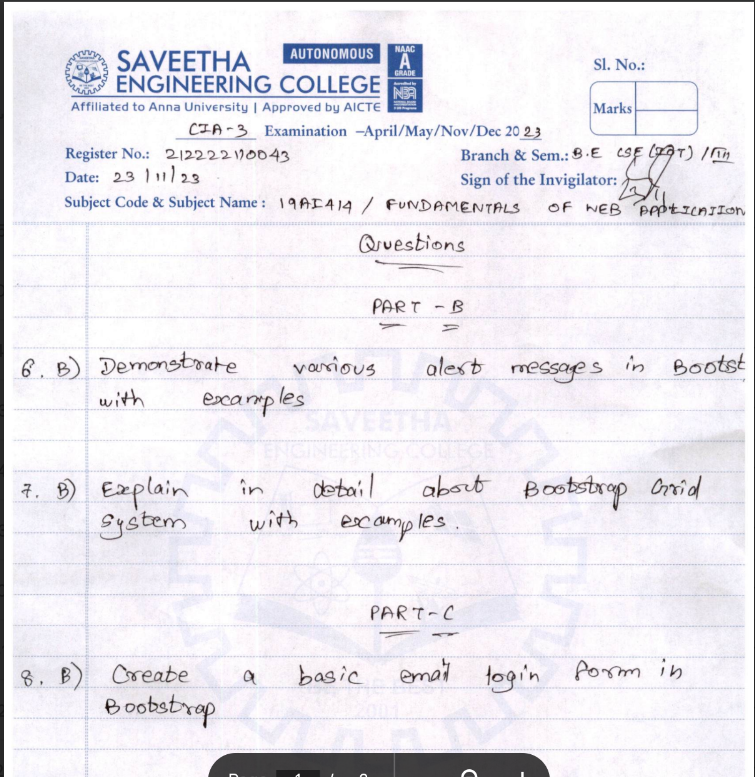 SAVEETHA
ENGINEERING COLLEGE
AUTONOMOUS
NAAC
A
GRADE
Affiliated to Anna University | Approved by AICTE
Sl. No.:
Marks
CIA-3 Examination –April/May/Nov/Dec 2023
Register No.: 212222110043
Branch & Sem.: B.E CSE (IOT) / III
Date: 23/11/23
Sign of the Invigilator:
Subject Code & Subject Name : 19AI414 / FUNDAMENTALS OF WEB APPLICATION
Questions
PART - B
6. B) Demonstrate various alert messages in Bootst
with examples
SAVEETHA
ENGINEERING COLLEGE
7. B) Explain in detail about Bootstrap Grid
System with examples.
PART-C
8. B) Create a basic email login form in
Bootstrap
2001